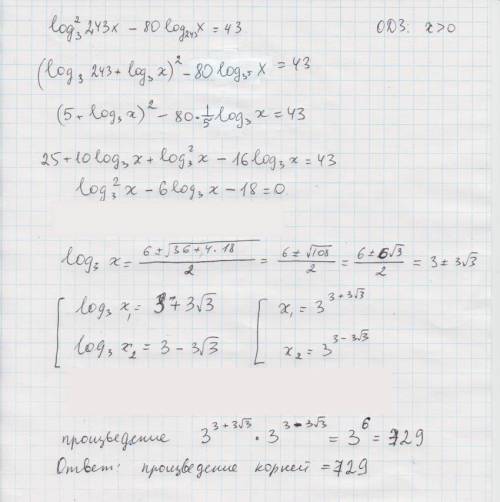 log₃² 243x − 80 log₂₄₃ x = 43 ОДЗ: x>0
(log₃ 243 + log₃ x)² − 80 log₃⁵ x = 43
(5 + log₃ x)² − 80·1/5 log₃ x = 43
25 + 10 log₃ x + log₃² x − 16 log₃ x = 43
log₃² x − 6 log₃ x − 18 = 0
log₃ x = (6 ± √(36 + 4·18))/2 = (6 ± √108)/2 = (6 ± 6√3)/2 = 3 ± 3√3
[ log₃ x₁ = 3 + 3√3 [ x₁ = 3^(3+3√3)
log₃ x₂ = 3 − 3√3 x₂ = 3^(3−3√3)
произведение 3^(3+3√3) · 3^(3−3√3) = 3⁶ = 729
Ответ: произведение корней = 729